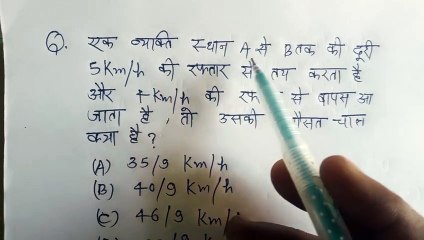 Q. एक व्यक्ति स्थान A से B तक की दूरी
5 Km/h की रफतार से तय करता है
और 4 Km/h की रफ से वापस आ
जाता है, तो उसकी औसत चाल
क्या है?
(A) 35/9 Km/h
(B) 40/9 Km/h
(C) 46/9 Km/h